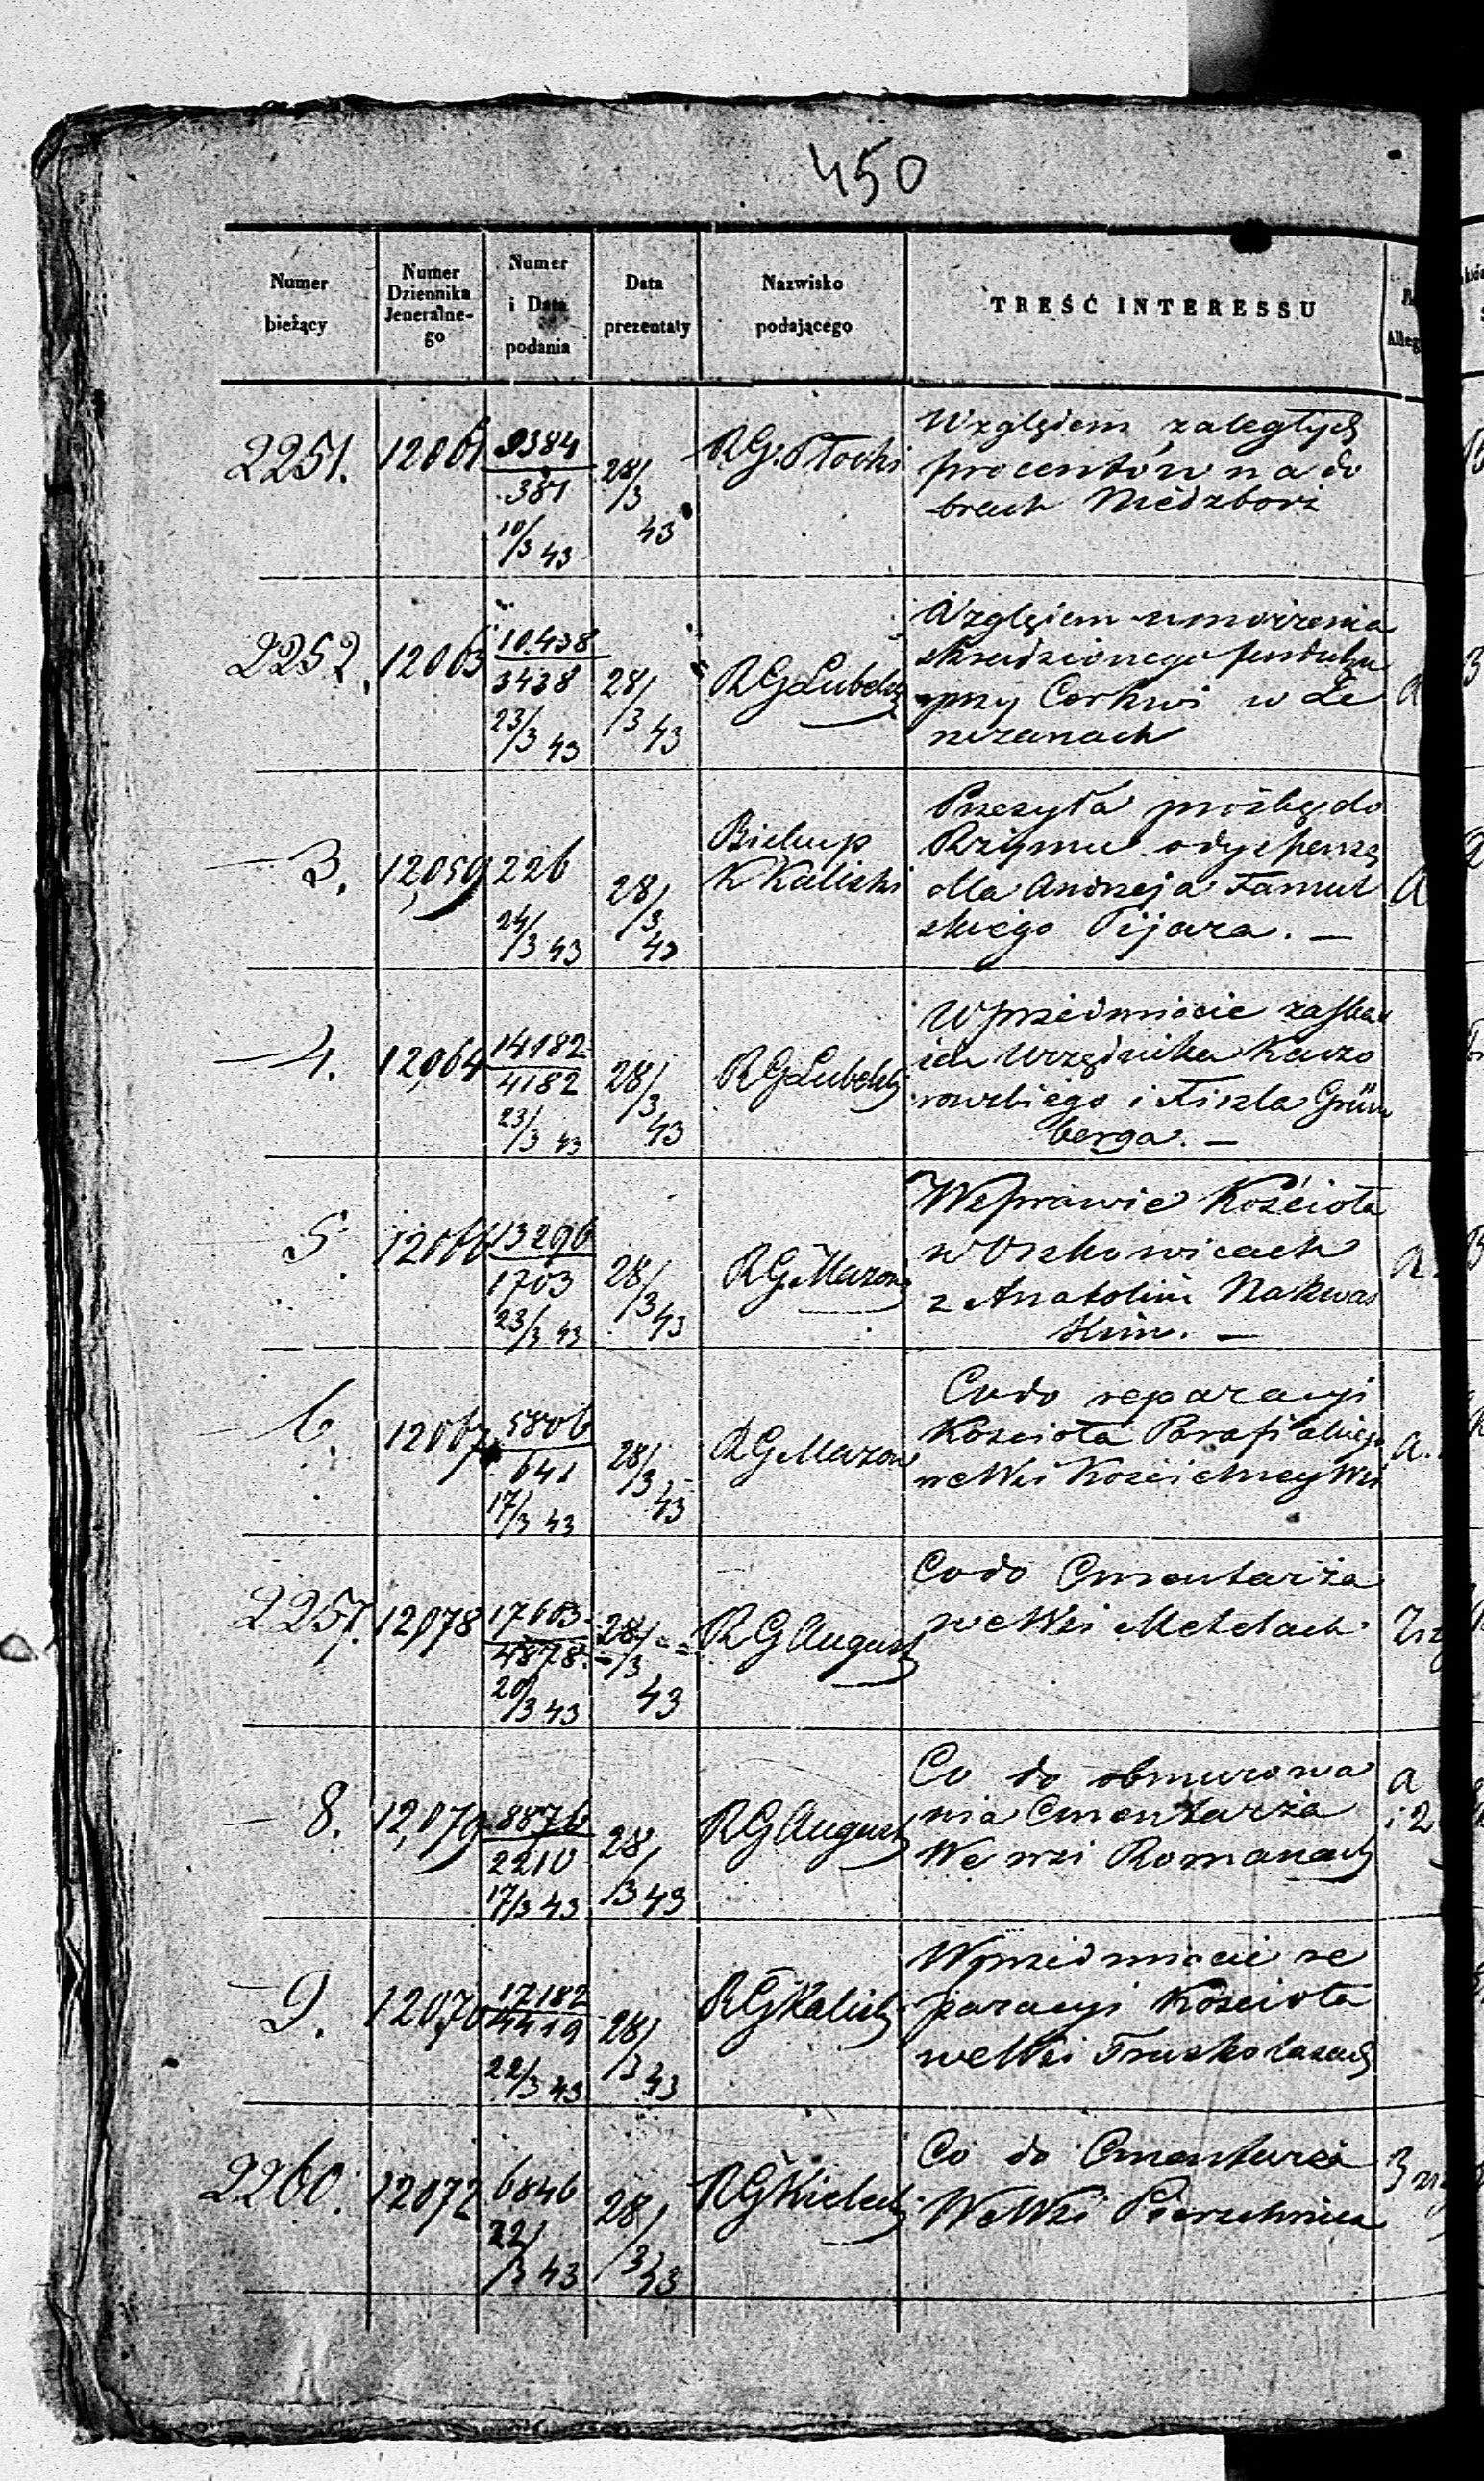 450
Numer bieżący
Numer Dziennika Jeneralne-go
Numer i Data podania
Data prezentaty
Nazwisko podającego
TREŚĆ INTERESSU
2251. 12061 9384/381 10/3 43 28/3 43 RG. Płocki
Względem zaległych
procentów na do
brach Niedzborz
2252. 12063 10.438/3438 23/3 43 28/3 43 RG Lubels
Względem umorzenia
skradzionego funduszu
przy Cerkwi w
3. 12,059 226 24/3 43 28/3 43 Biskup K Kaliski
Przesyła prośbę do
Rzymu o dyspensę
dla Andrzeja Famul
skiego Pijara. —
4. 12,064 14182/4182 23/3 43 28/3 43 RG Lubelski
W przedmiocie
Urzędnika Kaczo
rowskiego i Fiszla Grün
berga. —
5. 12066 13296/1703 23/3 43 28/3 43 RG Mazow
W sprawie Kościoła
w Orszkowicach
z Anatolim Nakwas
kim. —
6. 12067 5806/641 17/3 43 28/3 43 RG Mazow
Co do reparacyi
Kościoła Parafialnego
we Wsi Kościelney Wsi
2257. 12,078 17603/4878 20/3 43 28/3 43 RG August
Co do Cmentarza
we Wsi Metelach
8. 12,079 8876/2210 17/3 43 28/3 43 RG August
Co do obmurowa
nia Cmentarza
We wsi Romanach
9. 12070 17182/4419 22/3 43 28/3 43 RG Kalisk
W przedmiocie re
paracyi Kościoła
we Wsi Truskolasach
2260. 12072 6846 22/3 43 28/3 43 RG Kielecki
Co do Cmentarza
We Wsi Pierzchnica